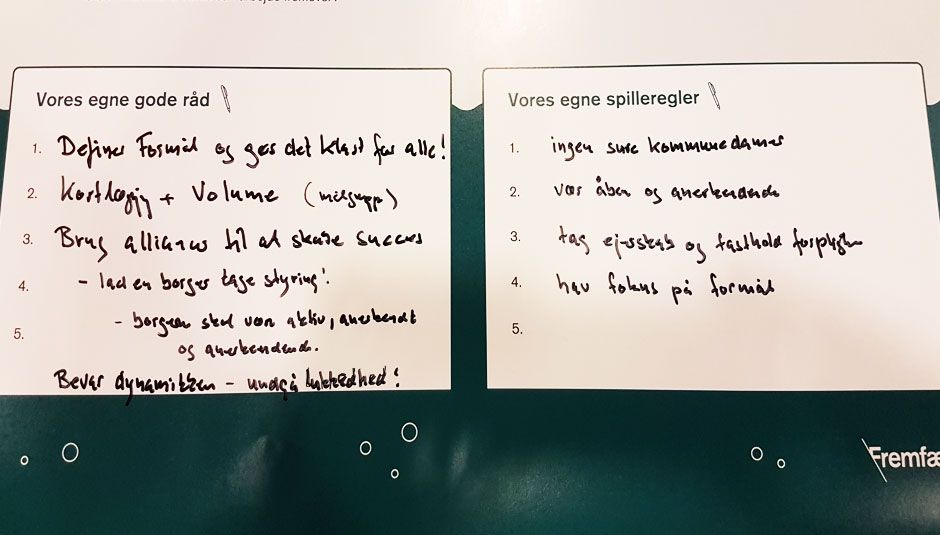 Vores egne gode råd
1. Definer Formål og gør det klart for alle!
2. Kortlægning + Volume (målgrupp)
3. Brug alliancer til at skabe succes
4. - lad en borger tage styring!
5. - borgeren skal være aktiv, anerkendt
og anerkendende.
Bevar dynamikken - undgå lukkedhed!
Vores egne spilleregler
1. ingen sure kommunedamer
2. vær åben og anerkendende
3. tag ejerskab og fasthold
4. hav fokus på formål
5.
Fremfæ